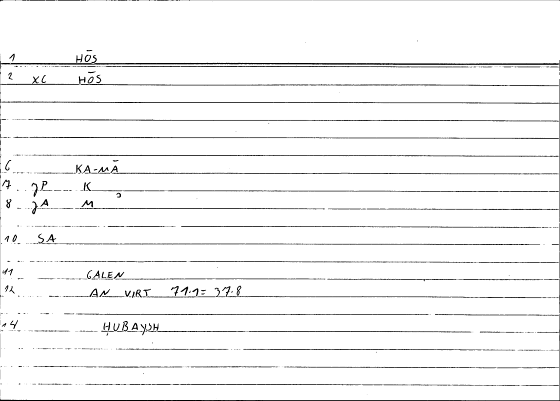 1 HŌS
2 XC HŌS
6 KA-MĀ
7 ȷP K
8 ȷA M ʾ
10 SA
11 GALEN
12 AN VIRT 71.1 = 37.8
14 ḤUBAYSH